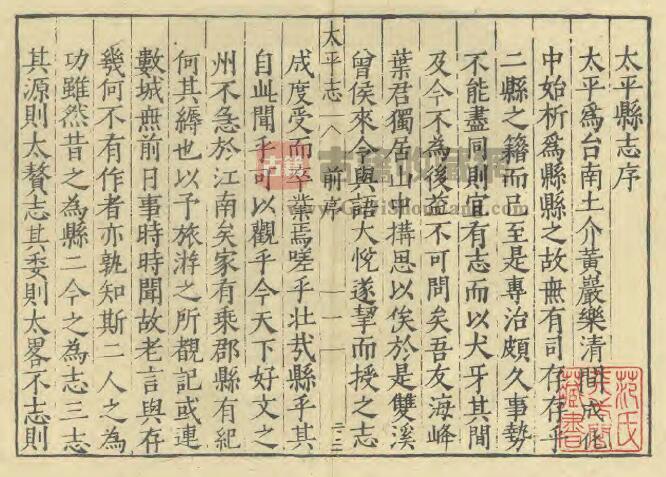 太平縣志序
太平爲台南土介黃巖樂清間成化
中始析爲縣縣之故無有司存存乎
二縣之籍而已至是專治頗久事勢
不能盡同則宜有志而以犬牙其間
及今不為後益不可問矣吾友海峰
葉君獨居山中搆思以俟於是雙溪
曾侯來令與語大悅遂挈而授之志
太平志 八 前序 一
成度受而卒業焉嗟乎壯哉縣乎其
自此聞乎可以觀乎今天下好文之
州不急於江南矣家有乘郡縣有紀
何其縟也以予旅游之所覩記或連
數城無前日事時時聞故老言與存
幾何不有作者亦孰知斯二人之為
功雖然昔之為縣二今之為志三志
其源則太贅志其委則太畧不志則
范氏
藏書
古籍